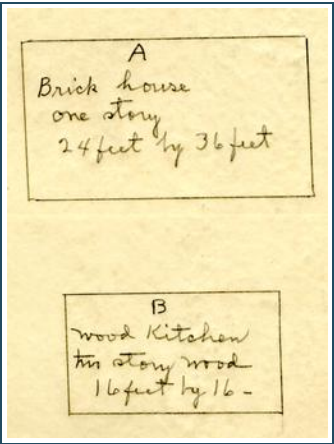 A
Brick house
one story
24 feet by 36 feet
B
wood Kitchen
story wood
16 feet by 16 -